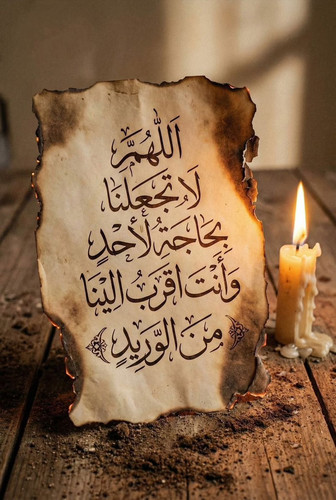 اَللّهُمَّ
لَا تَجعَلنَا
بِحَاجَةِ لأَحْدٍ
وَأَنْتَ اقرَبُ اليْنَا
مِنَ الوَرِيدِ